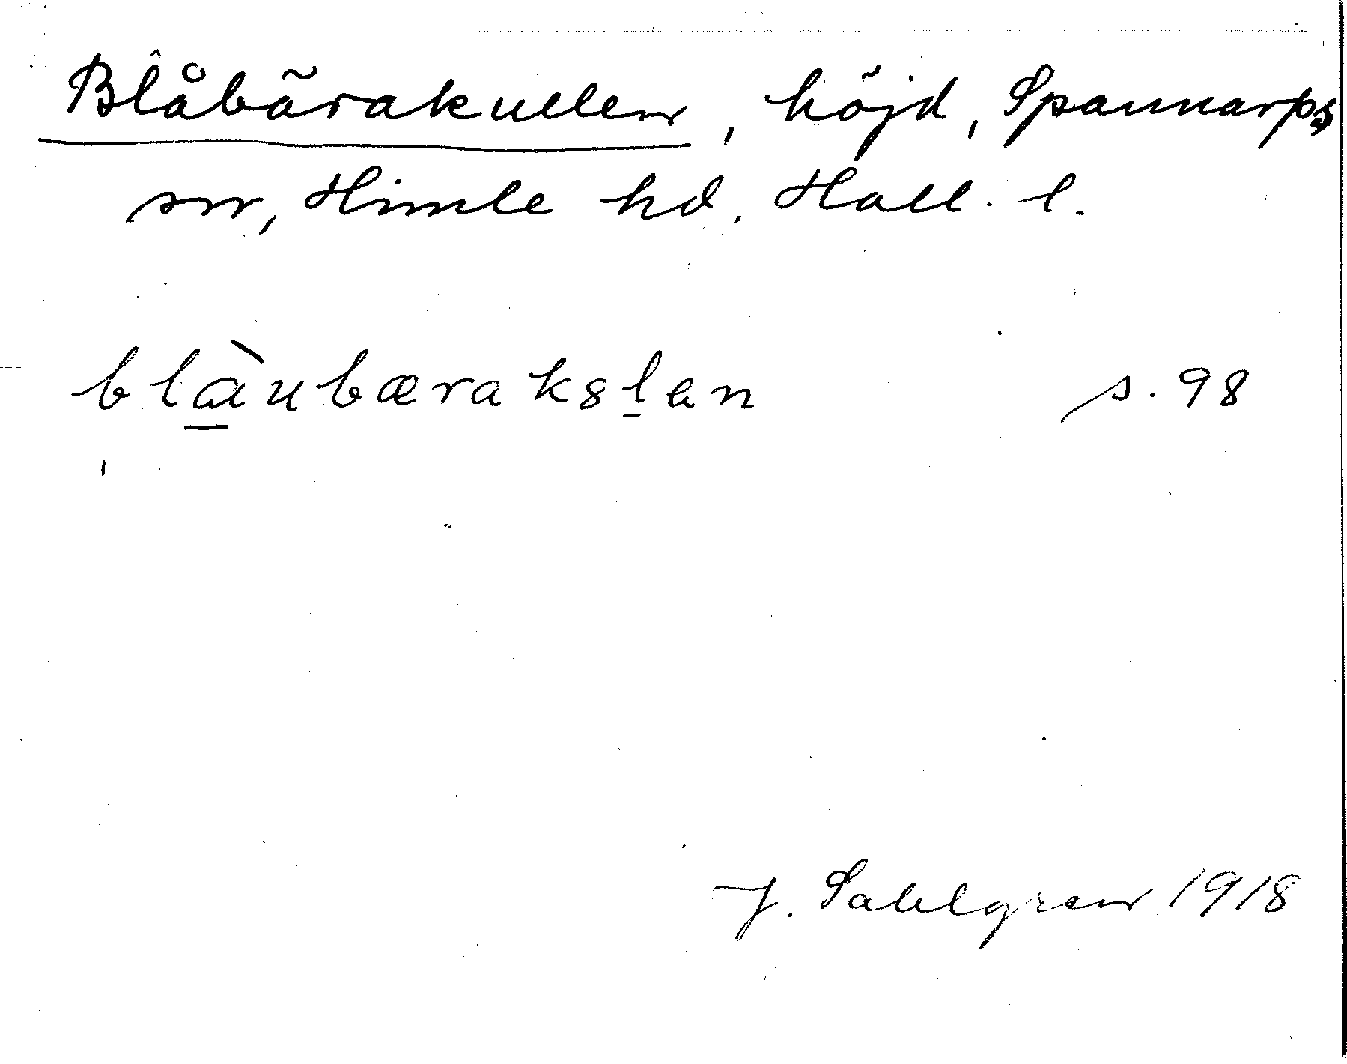 Blåbärakullen, höjd, Spannarps
sn, Himle hd. Hall. l.
blàubærakslan s. 98
J. Sahlgren 1918